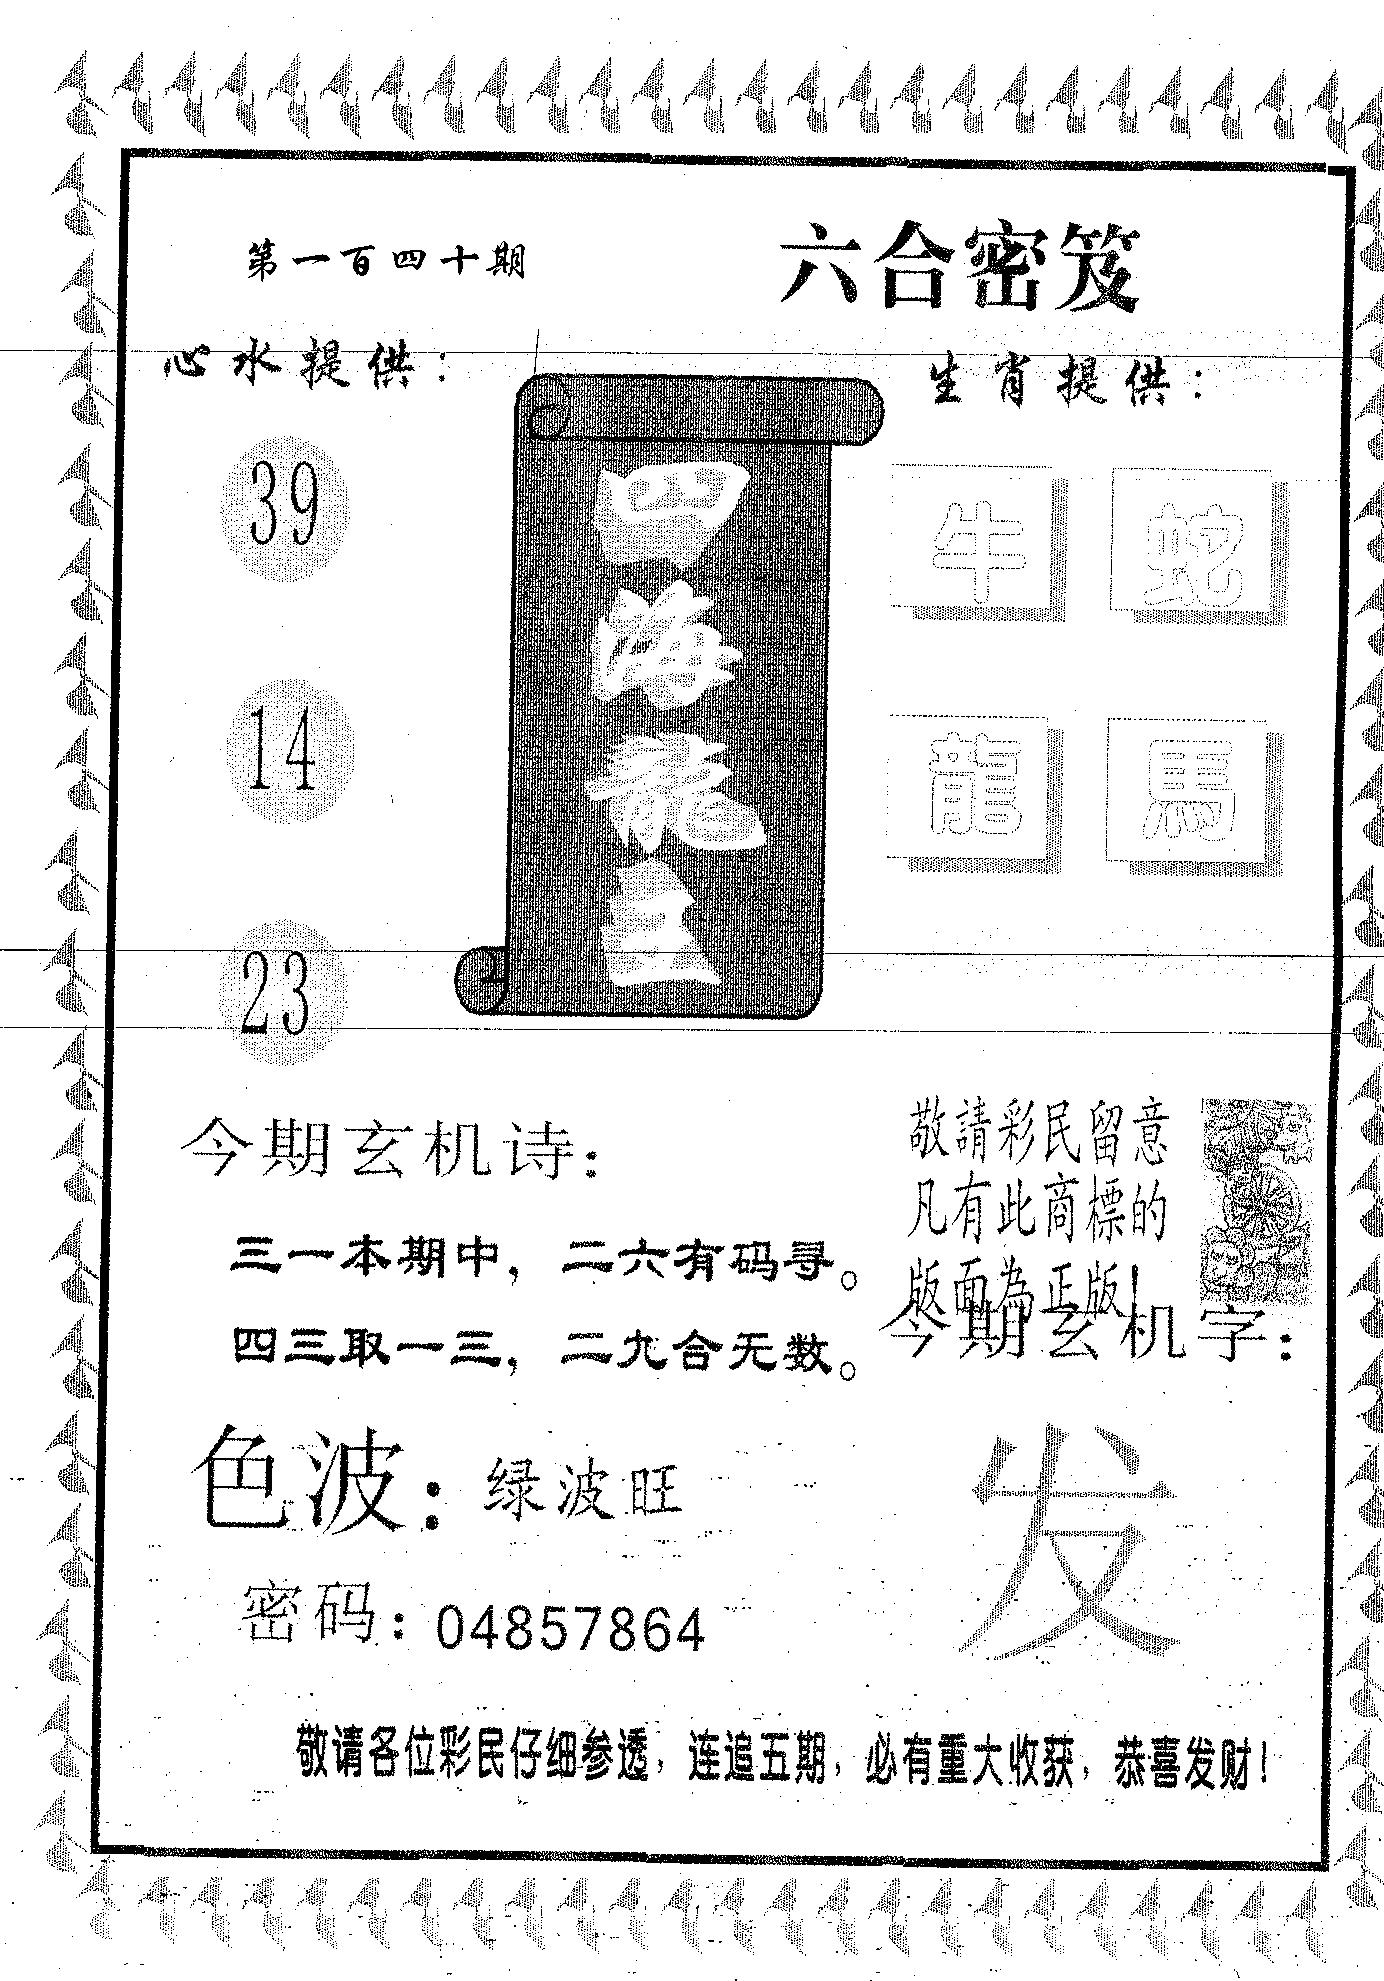 第一百四十期
六合密笈
心水提供：
生肖提供：
39
14
23
四海龍王
牛 蛇
龍 馬
今期玄机诗：
三一本期中，二六有码寻。
四三取一三，二九合无数。
敬請彩民留意
凡有此商標的
版面為正版！
今期玄机字：
发
色波：绿波旺
密码：04857864
敬请各位彩民仔细参透，连追五期，必有重大收获，恭喜发财！